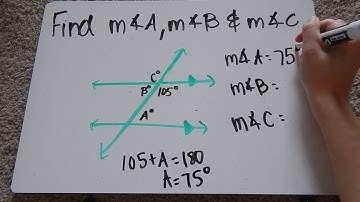 Find m∡A, m∡B & m∡C
C°
B° 105°
A°
m∡A = 75°
m∡B =
m∡C =
105 + A = 180
A = 75°